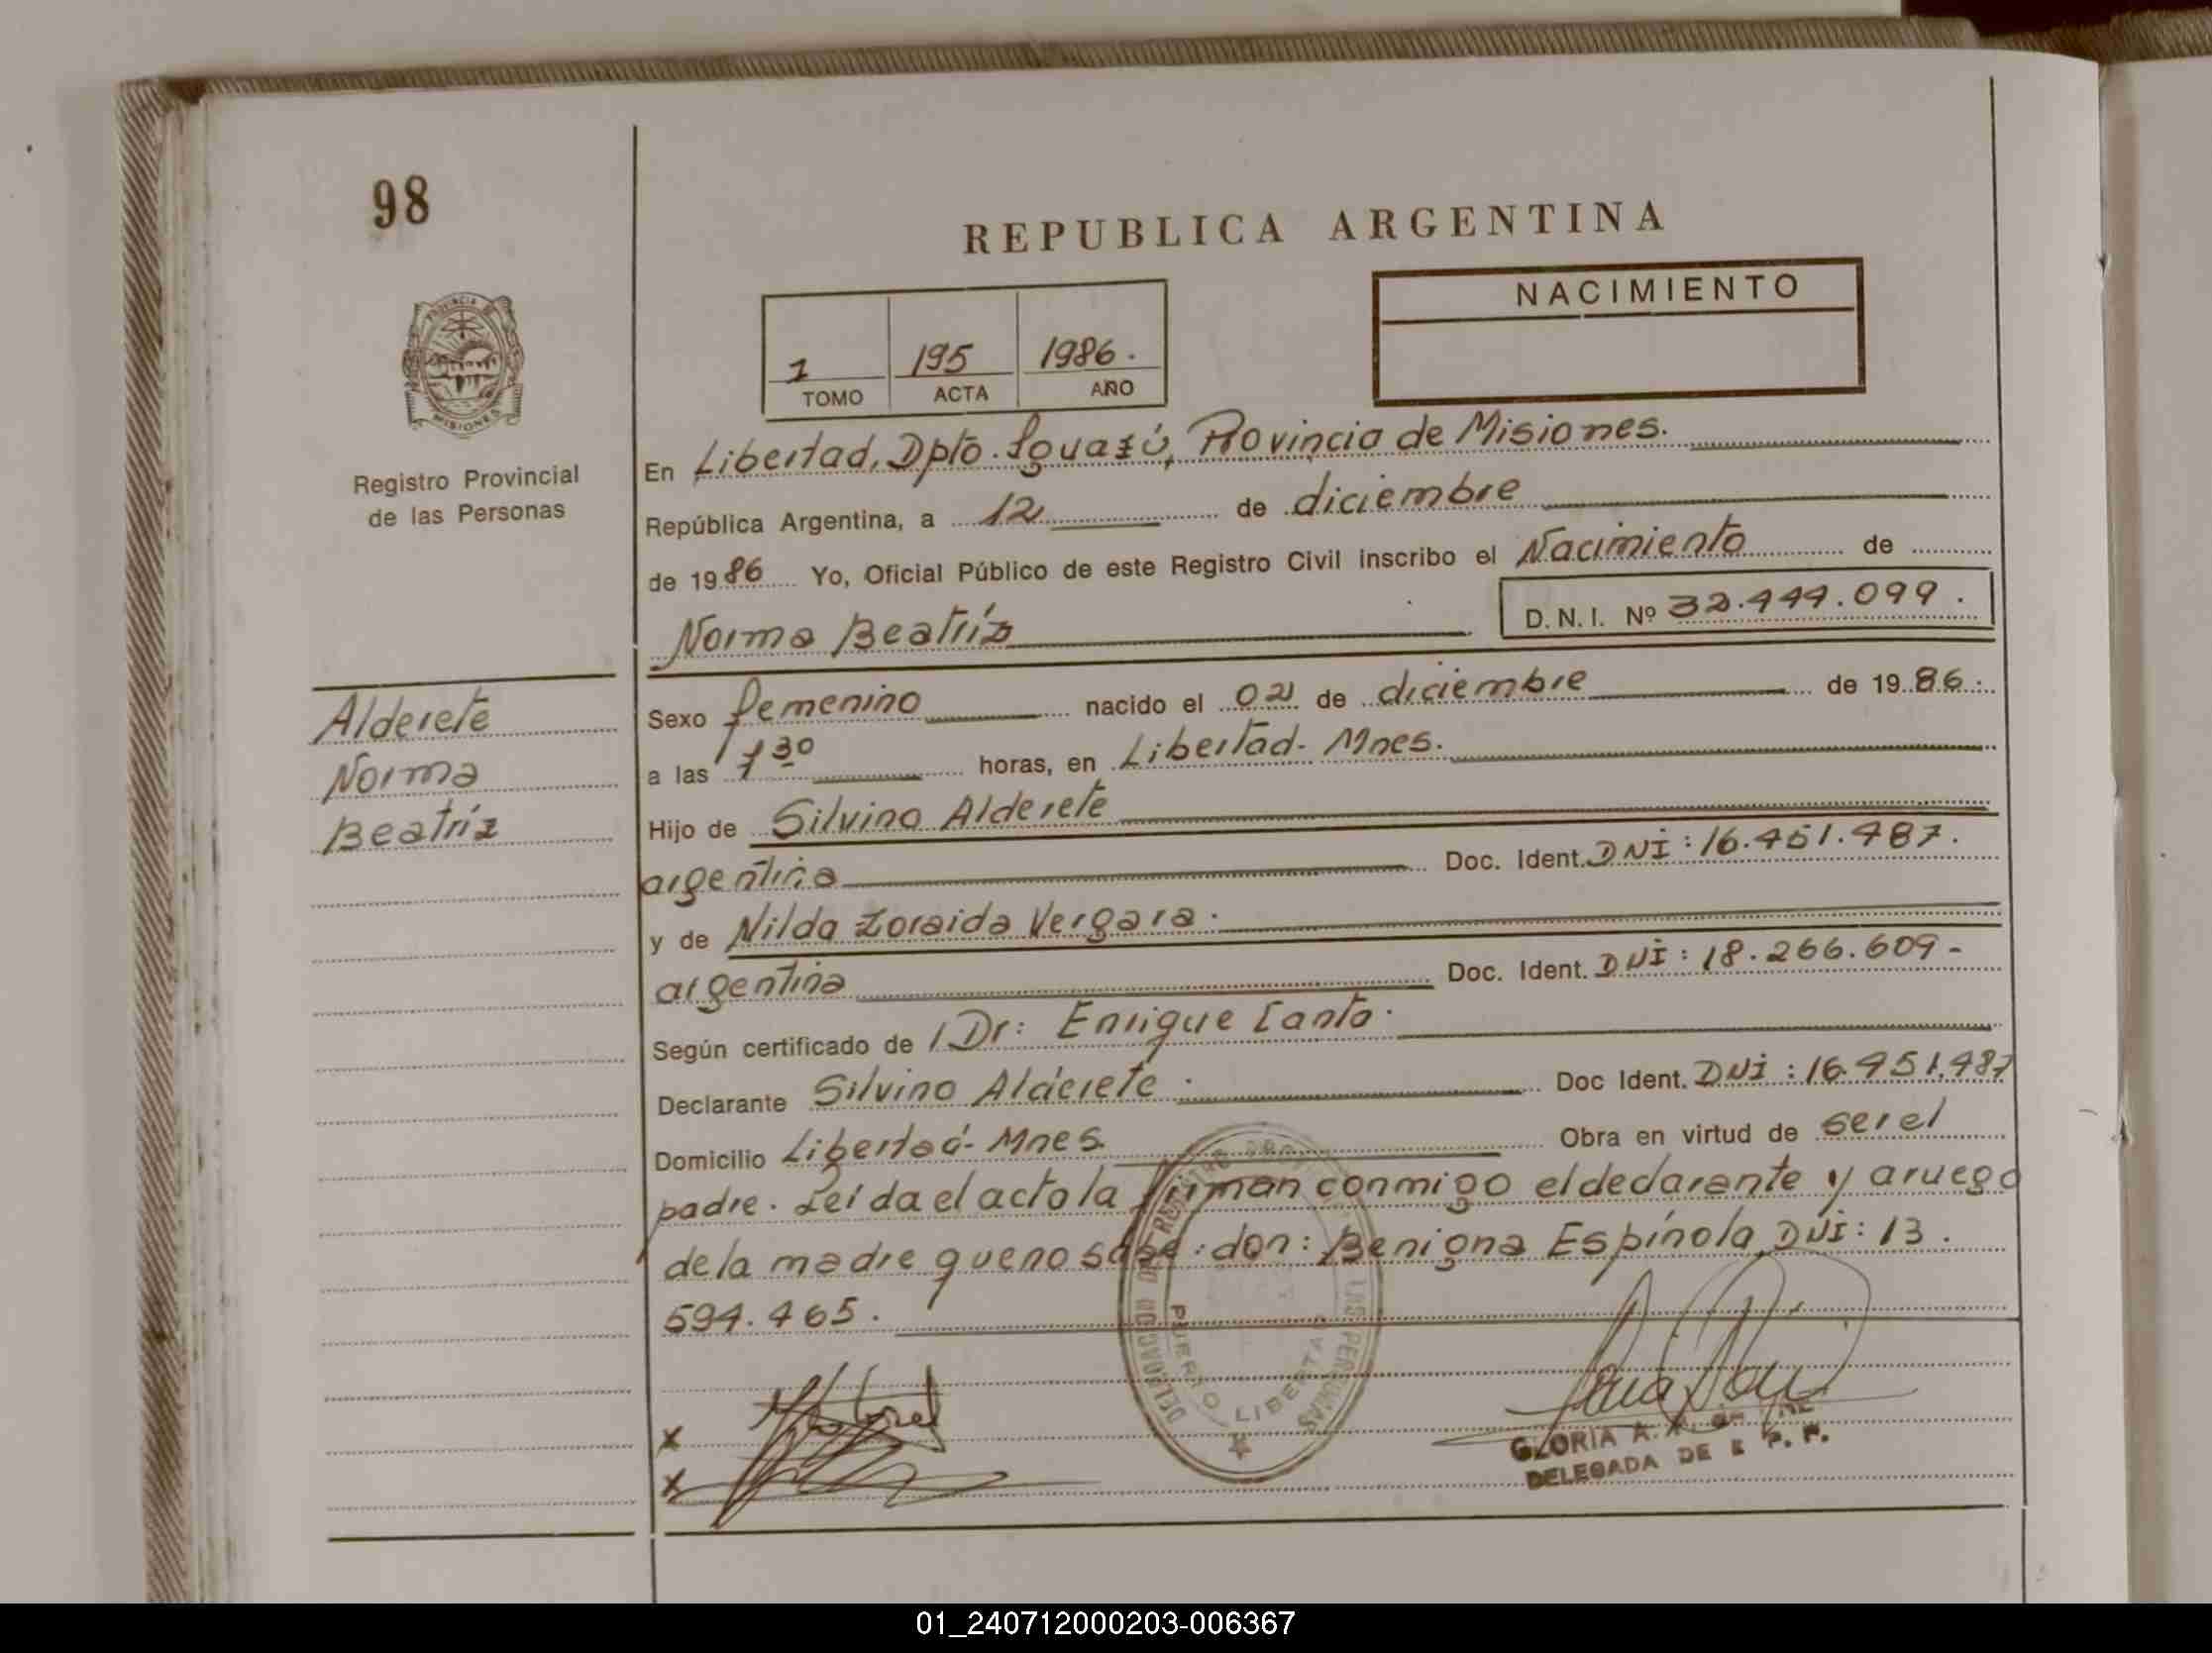 98
REPUBLICA ARGENTINA
PROVINCIA DE
MISIONES
Registro Provincial
de las Personas
NACIMIENTO
1 195 1986.
TOMO ACTA AÑO
En Libertad, Dpto. Iguazú, Provincia de Misiones.
República Argentina, a 12 de diciembre
de 1986 Yo, Oficial Público de este Registro Civil inscribo el Nacimiento de
Norma Beatríz D.N.I. Nº 32.444.099.
Alderete
Norma
Beatríz
Sexo femenino nacido el 02 de diciembre de 1986.
a las 1 30 horas, en Libertad. Mnes.
Hijo de Silvino Alderete
argentina Doc. Ident. DNI: 16.451.487.
y de Nilda Zoraida Vergara.
argentina Doc. Ident. DNI: 18.266.609-
Según certificado de Dr: Enrique Canto.
Declarante Silvino Alderete. Doc Ident. DNI: 16.451.487
Domicilio Libertad- Mnes. Obra en virtud de ser el
padre. Leída el acto la firman conmigo el declarante y a ruego
de la madre que no sabe: don: Benigna Espínola, DNI: 13.
594.465.
DELEGACION DEL REGISTRO PROV. LAS PERSONAS
PUERTO LIBERTAD
x
x
GLORIA A.
DELEGADA DE
01_240712000203-006367